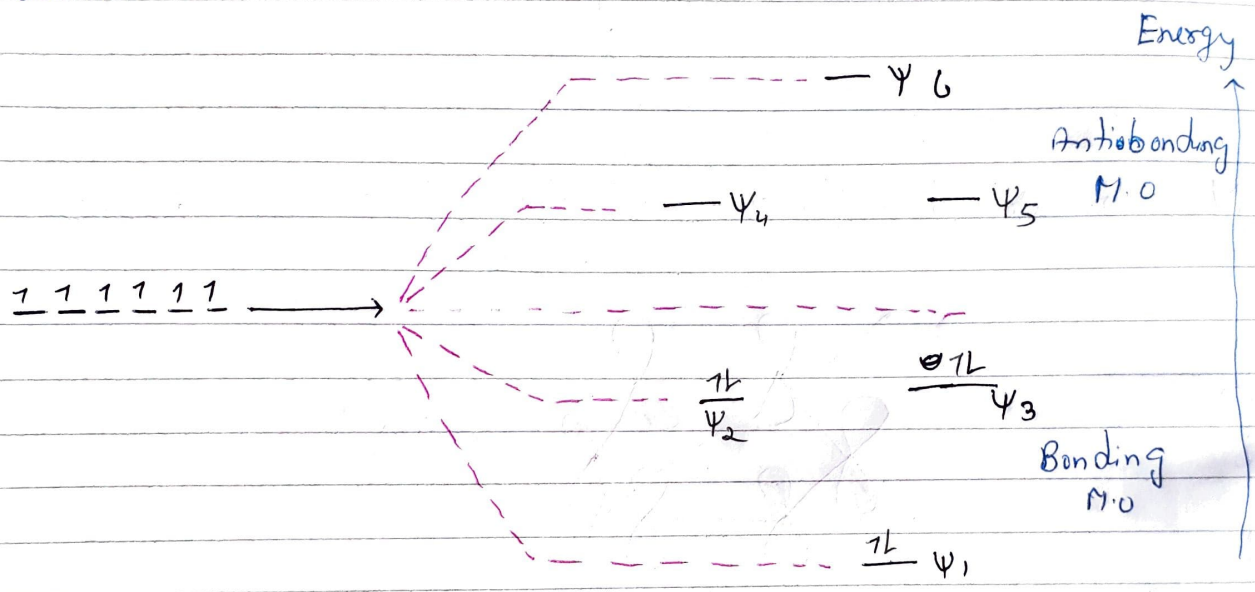 Energy
Ψ 6
Antibonding
M.O
Ψ4
Ψ5
1 1 1 1 1 1
1L
1L
Ψ2
Ψ3
Bonding
M.O
1L Ψ1